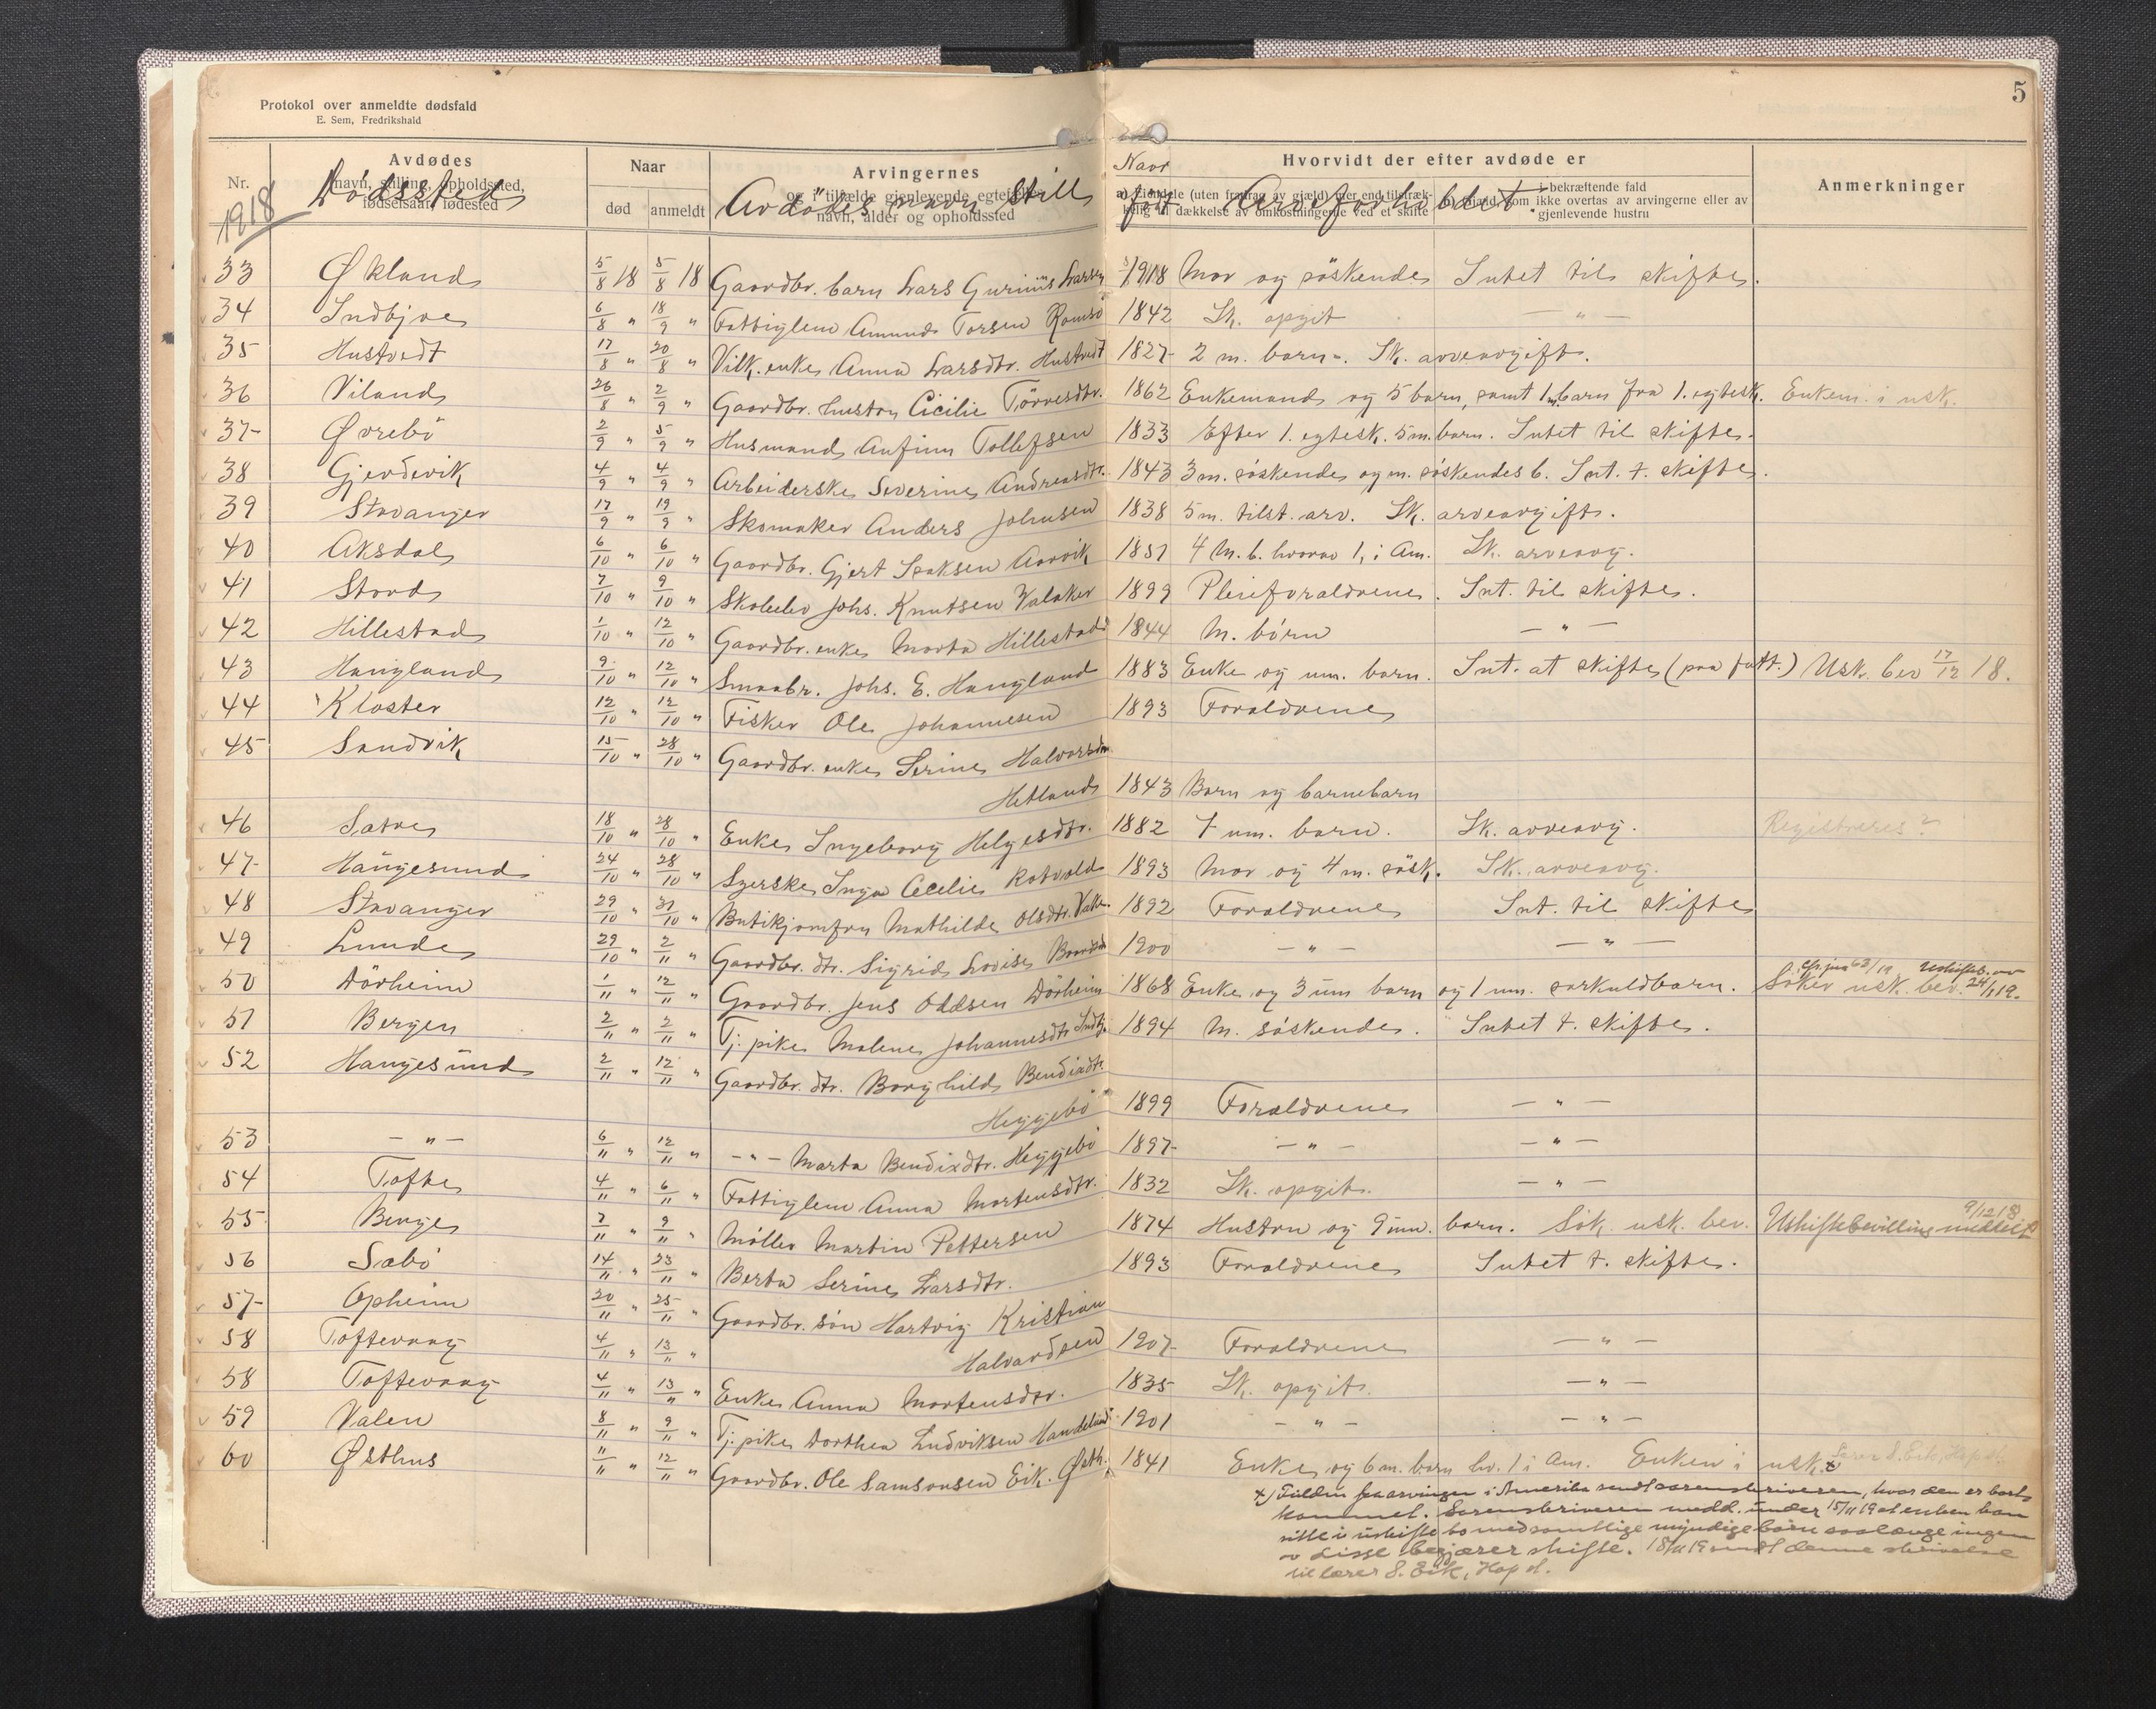 Protokol over anmeldte dødsfald
E. Sem, Fredrikshald
5
Nr. Avdødes navn, stilling, opholdssted, fødselsaar, fødested Naar død anmeldt Arvingernes og i tilfælde gjenlevende egtefælles navn, alder og opholdssted
Hvorvidt der efter avdøde er
a) Eiendele (uten fradrag av gjæld) mer end tilstrækkelig til dækkelse av omkostningerne ved et skifte
i bekræftende fald b) Gjæld, som ikke overtas av arvingerne eller av gjenlevende hustru
Anmerkninger
1918 Dødssted Avdødes navn, Still Naar født Arveforholdet.
33 Økland 5/8 18 5/8 18 Gaardbr. barn Lars Gurinius Larsen 1918 Mor og söskende Intet til skifte.
34 Indbjoe 6/8 " 18/9 " Fattiglem Amund Torsen Romsa 1842 Sk. opgit — " —
35 Hustvedt 17/8 " 20/8 " Vilk. enke Anna Larsdtr. Hustvedt 1827 2 m. barn. Sk. arveavgift.
36 Viland 26/8 " 2/9 " Gaardbr. hustru Cicilie Törresdtr. 1862 Enkemand og 5 barn, samt 1 m. barn fra 1. egtesk. Enkem. i usk.
37 Øvrebö 2/9 " 5/9 " Husmand Anfinn Tollefsen 1833 Efter 1. egtesk. 5 m. barn. Intet til skifte.
38 Gjerdevik 4/9 " 4/9 " Arbeiderske Severine Andreasdtr. 1843 3 m. söskende og m. söskendes b. Int. t. skifte.
39 Stavanger 17/9 " 19/9 " Skomaker Anders Johnsen 1838 5 m. tilst. arv. Sk. arveavgift.
40 Aksdal 6/10 " 6/10 " Gaardbr. Gjert Isaksen Aarvik 1851 4 m. b. hvorav 1, i Am. Sk. arveavg.
41 Stord 7/10 " 9/10 " Skoleelev Johs. Knutsen Valaker 1899 Pleieforældrene. Int. til skifte.
42 Hillestad 1/10 " 12/10 " Gaardbr. enke Marta Hillestad 1844 M. börn — " —
43 Haugland 9/10 " 12/10 " Smaabr. Johs. E. Haugland 1883 Enke og um. barn. Int. at skifte (paa fatt.) Usk. bev 17/12 18.
44 Kloster 12/10 " 12/10 " Fisker Ole Johannesen 1893 Forældrene
45 Sandvik 15/10 " 28/10 " Gaardbr. enke Serine Halvorsdtr.
Hetland 1843 Barn og barnebarn
46 Sætre 18/10 " 28/10 " Enke Ingeborg Helgesdtr. 1882 7 um. barn. Sk. arveavg. Registreres?
47 Haugesund 24/10 " 28/10 " Syerske Inga Cecilie Rotvold 1893 Mor og 4 m. sösk. Sk. arveavg.
48 Stavanger 29/10 " 31/10 " Butikjomfru Mathilde Olsdtr. 1892 Forældrene Int. til skifte
49 Lunde 29/10 " 2/11 " Gaardbr. dtr. Sigrid Lovise 1900 — " — — " —
50 Dörheim 1/11 " 12/11 " Gaardbr. Jens Oddsen Dörheim 1868 Enke og 3 um barn og 1 um. særkuldbarn. Söker usk. bev. 24/1 19.
51 Bergen 2/11 " 2/11 " Tj. pike Malene Johannesdtr 1894 M. söskende. Intet t. skifte.
52 Haugesund 2/11 " 12/11 " Gaardbr. dtr. Borghild Bendixdtr.
Heggebö 1899 Forældrene — " —
53 — " — 6/11 " 12/11 " — " — Marta Bendixdtr. Heggebö 1897 — " — — " —
54 Tofte 4/11 " 6/11 " Fattiglem Anna Mortensdtr. 1832 Sk. opgit. — " —
55 Berge 7/11 " 9/11 " Möller Martin Pettersen 1874 Hustru og 9 um. barn. Sök. usk. bev. Uskiftebevilling meddelt 9/12 18
56 Sæbö 14/11 " 23/11 " Berta Serine Larsdtr. 1893 Forældrene Intet t. skifte.
57 Opheim 20/11 " 25/11 " Gaardbr. sön Hartvig Kristian
58 Toftevaag 4/11 " 13/11 " Halvardsen 1907 Forældrene — " —
58 Toftevaag 4/11 " 13/11 " Enke Anna Mortensdtr. 1835 Sk. opgit. — " —
59 Valen 8/11 " 9/11 " Tj. pike Dorthea Ludviksen Handeland 1901 — " — — " —
60 Østhus 11/11 " 12/11 " Gaardbr. Ole Samsonsen Eik. Østh. 1841 Enke og 6 m. barn hv. 1 i Am. Enken i usk. x
x) Fuldm fra arvingen i Amerika sendt sorenskriveren, hvor den er bort-
kommet. Sorenskriveren medd. under 15/11 19 at enken kan
sitte i uskifte bo med samtlige myndige börn saalænge ingen
av disse begjærer skifte. 18/11 19 sendt denne skrivelse
til lærer S. Eik, Hop st.